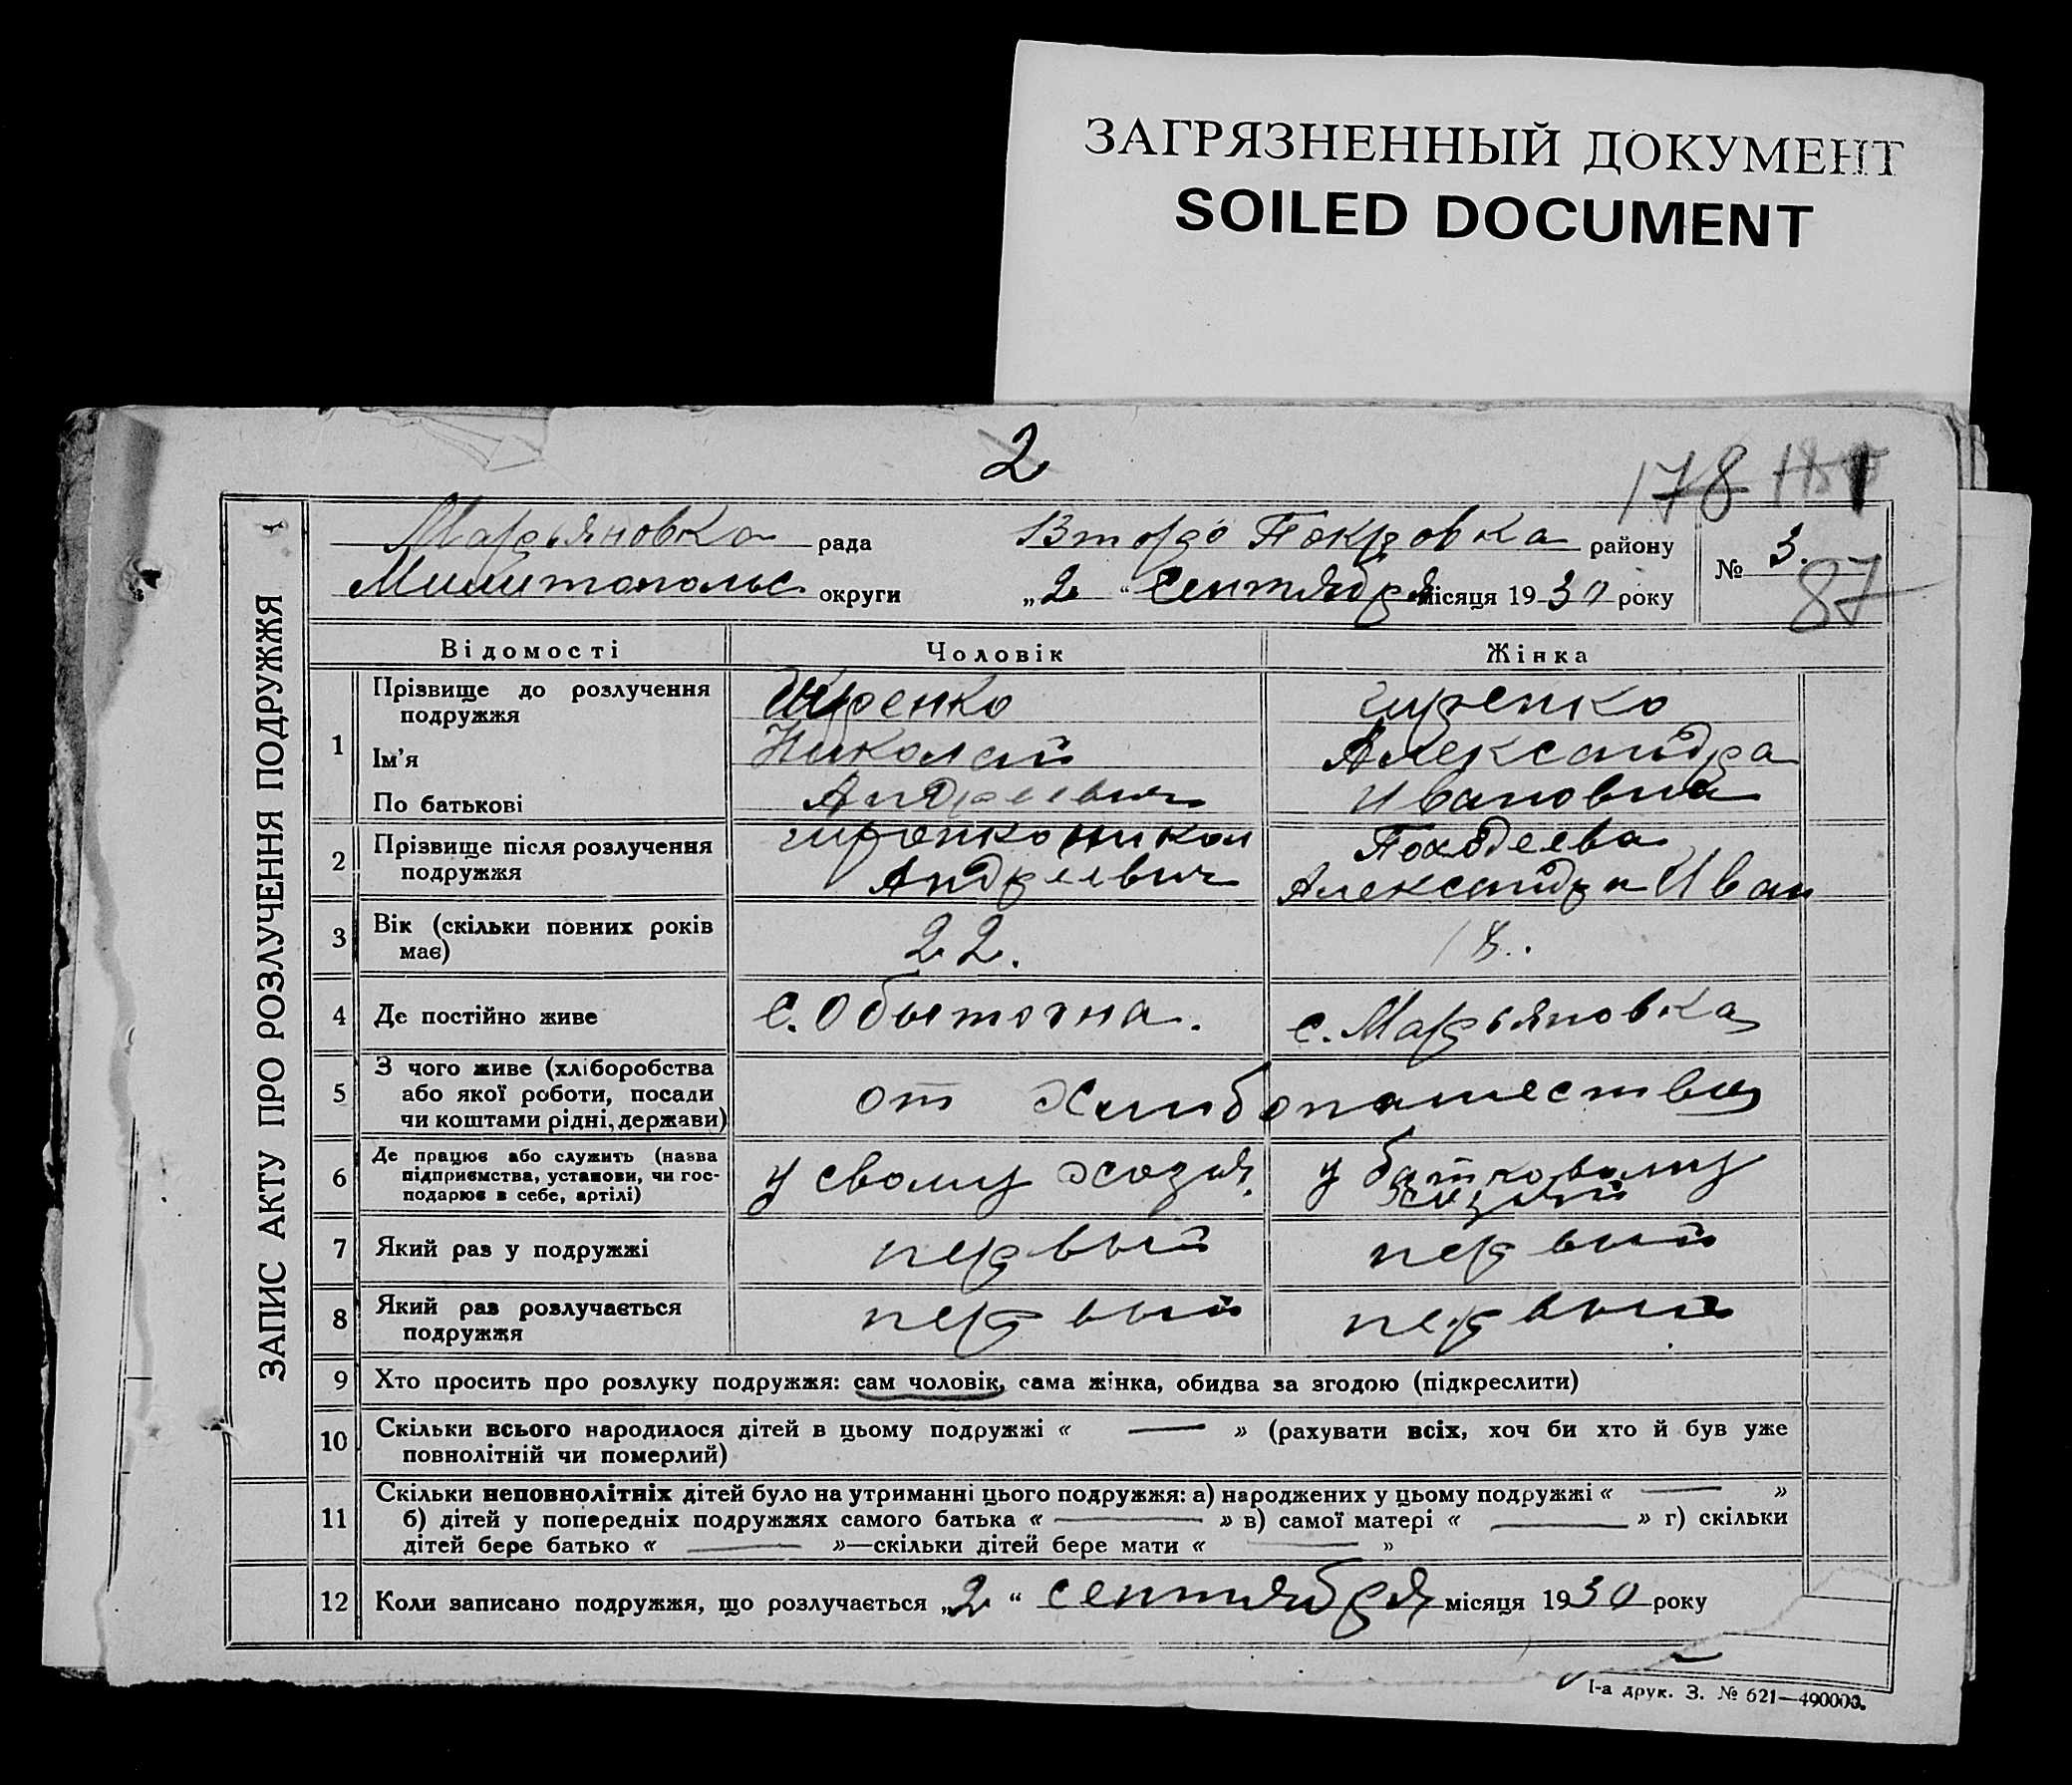 ЗАГРЯЗНЕННЫЙ ДОКУМЕНТ
SOILED DOCUMENT
2
178
ЗАПИС АКТУ ПРО РОЗЛУЧЕННЯ ПОДРУЖЖЯ
Марьяновка рада Второ Покровка району № 3.
округи „2“ сентября місяця 1930 року 87
Відомості Чоловік Жінка
1 Прізвище до розлучення
подружжя
Ім'я Николай Александра
По батькові Андреевич Ивановна
2 Прізвище після розлучення никол
подружжя Андреевич Александра Иван
3 Вік (скільки повних років
має) 22. 18.
4 Де постійно живе с. Обыточна. с. Марьяновка
5 З чого живе (хліборобства
або якої роботи, посади
чи коштами рідні, держави) от
6 Де працює або служить (назва
підприємства, установи, чи гос-
подарює в себе, артілі) у свому хозяй. у
7 Який раз у подружжі первый первый
8 Який раз розлучається
подружжя первый первый
9 Хто просить про розлуку подружжя: сам чоловік, сама жінка, обидва за згодою (підкреслити)
10 Скільки всього народилося дітей в цьому подружжі « — » (рахувати всіх, хоч би хто й був уже
повнолітній чи померлий)
11 Скільки неповнолітніх дітей було на утриманні цього подружжя: а) народжених у цьому подружжі « — »
б) дітей у попередніх подружжях самого батька « — » в) самої матері « — » г) скільки
дітей бере батько « — »—скільки дітей бере мати « — »
12 Коли записано подружжя, що розлучається „2“ сентября місяця 1930 року
1-а друк. З. № 621—490000.